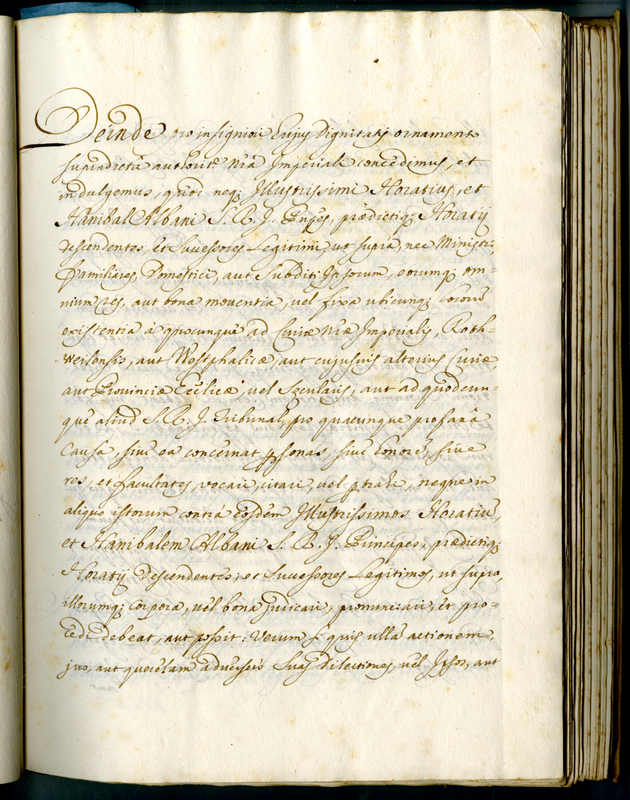 Deinde pro insigniori hujus Dignitatis ornamento
supradictâ authorite Nrâ Imperiali concedimus, et
indulgemus, quòd neq; Illustrissimi Horatius, et
Hanibal Albani S. R. I. Pnpes, prædictiq; Horatij
Descendentes, et Successores Legitimi, ut supra, nec Ministri,
familiares, Domestici, aut Subditi Ipsorum, eorumq; om-
nium res, aut bona moventia, vel fixa ubicunq; locorū
existentia à quocunque ad Curiæ Nræ Imperialis, Roth-
weilensis, aut Westphalicæ, aut cujusvis alterius Curiæ,
aut Provinciæ Ecclicæ, vel Sæcularis, aut ad quodcun-
que aliud S. R. I. Tribunal, pro quacunque profanâ
Causâ, sive ea concernat psonas, sive honorē, sive
res, et facultates, vocari, citari, vel ptrahi, neque in
aliquo istorum contra Eosdem Illustrissimos Horatiū,
et Hanibalem Albani S. R. I. Principes, prædictiq;
Horatij Descendentes, et Successores Legitimos, ut supra,
illorumq; corpora, vel bona judicari, pronunciari, et pro-
cedi debeat, aut possit: Verum si quis ullâ actionem
jus, aut querelam adversus Suas Dilectiones, vel Ipsos, aut